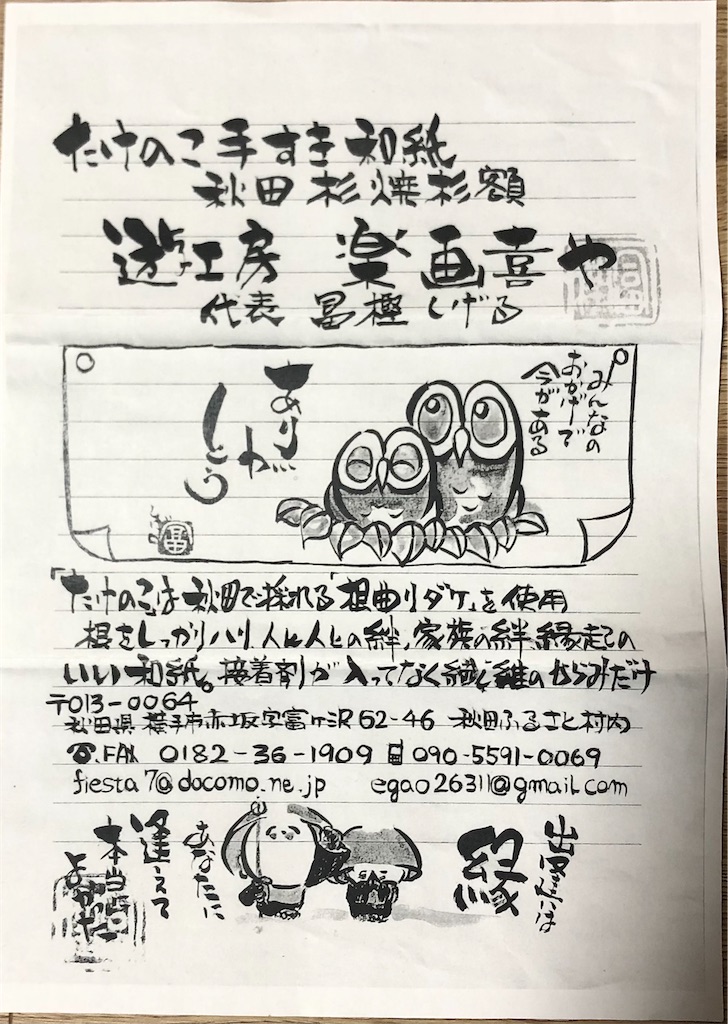 たけのこ手すき和紙
秋田杉焼杉額
遊工房 楽画喜や
代表 冨樫しげる
みんなの
おかげで
今がある
ありが
とう
冨
「たけのこは秋田で採れる「根曲りダケ」を使用
根をしっかりハリ人と人との絆、家族の絆、縁起の
いい和紙。接着剤が入ってなく繊維のからみだけ
〒013-0064
秋田県横手市赤坂字富ヶ沢62-46 秋田ふるさと村内
☎.FAX 0182-36-1909 📱090-5591-0069
fiesta7@docomo.ne.jp egao26311@gmail.com
出逢いは
縁
あなたに
逢えて
本当に
よかった